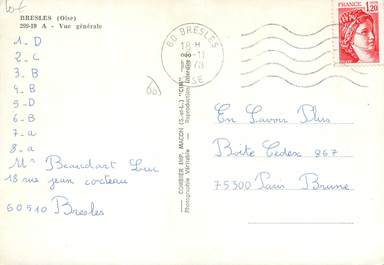 Lot
BRESLES (Oise)
299-19 A - Vue générale
1-D
2-C
3-B
4-B
5-D
6-B
7-a
8-a
Mr Beaudart Luc
18 rue jean cocteau
60510 Bresles
60 BRESLES
18 H
1978
OISE
COMBIER IMP. MACON (S.-et-L.) "CIM"
Photographie Véritable - Reproduction Interdite
FRANCE
1,20
En Savoir Plus
Boite Cedex 867
75300 Paris Brune